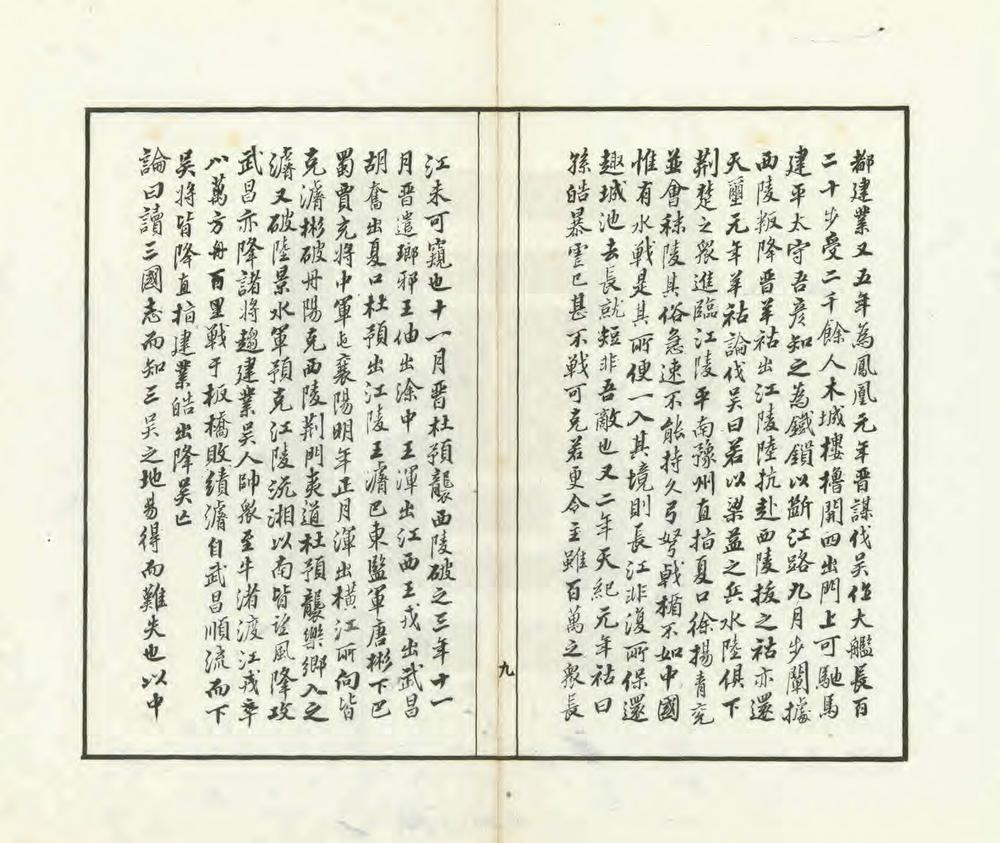 都建業又五年為鳳凰元年晋謀伐吳作大艦長百
二十步受二千餘人木城樓櫓開四出門上可馳馬
建平太守吾彦知之為鐵鎖以斷江路九月步闡據
西陵叛降晋羊祜出江陵陸抗赴西陵拔之祜亦還
天璽元年羊祜論伐吳曰若以梁益之兵水陸俱下
荆楚之衆進臨江陵平南豫州直指夏口徐揚青兖
並會秣陵其俗急速不能持久弓弩戟楯不如中國
惟有水戰是其所便一入其境則長江非復所保還
趣城池去長就短非吾敵也又二年天紀元年祜曰
孫皓暴虐已甚不戰可克若更令主雖百萬之衆長
九
江未可窺也十一月晋杜預襲西陵破之三年十一
月晋遣瑯邪王伷出涂中王渾出江西王戎出武昌
胡奮出夏口杜預出江陵王濬巴東監軍唐彬下巴
蜀賈充將中軍屯襄陽明年正月渾出橫江所向皆
克濬彬破丹陽克西陵荆門夷道杜預襲樂鄉入之
濬又破陸景水軍預克江陵沅湘以南皆望風降攻
武昌亦降諸將趨建業吳人帥衆至牛渚渡江戎率
八萬方舟百里戰于板橋敗績濬自武昌順流而下
吳將皆降直指建業皓出降吳亡
論曰讀三國志而知三吳之地易得而難失也以中